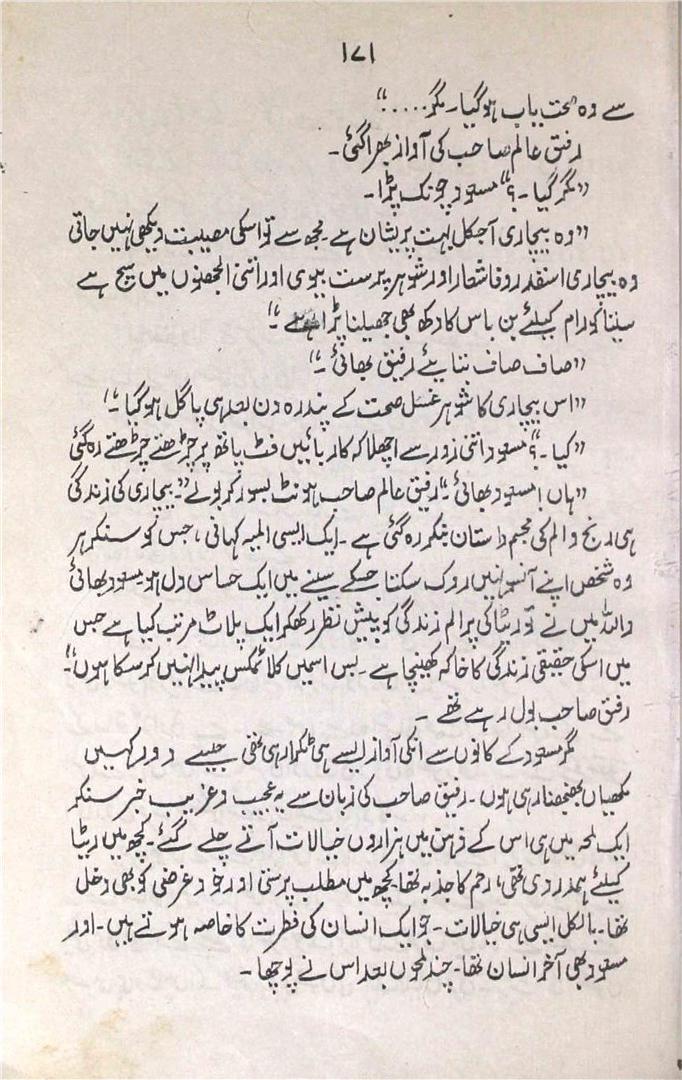 ۱۷۱
سے وہ صحت یاب ہوگیا۔ مگر....“
رفیق عالم صاحب کی آواز بھراگئی۔
”مگر گیا۔؟“ مسعود چونک پڑا۔
”وہ بیچاری آجکل بہت پریشان ہے۔ مجھ سے تو اسکی مصیبت دیکھی نہیں جاتی
وہ بیچاری اسقدر وفا شعار اور شوہر پرست بیوی اور اتنی الجھنوں میں سچ ہے
سیتا کو رام کیلئے بن باس کا دکھ بھی جھیلنا پڑا ہے۔“
”صاف صاف بتایئے رفیق بھائی۔“
”اس بیچاری کا شوہر غسل صحت کے پندرہ دن بعد ہی پاگل ہوگیا۔“
”کیا۔؟“ مسعود اتنی زور سے اچھلا کہ کار بائیں فٹ پاتھ پر چڑھتے چڑھتے رہ گئی
”ہاں! مسعود بھائی۔“ رفیق عالم صاحب ہونٹ بسور کر بولے ”۔ بیچاری کی زندگی
ہی رنج و الم کی مجسم داستان بنکر رہ گئی ہے۔ ایک ایسی المیہ کہانی، جس کو سنکر ہر
وہ شخص اپنے آنسو نہیں روک سکتا جسکے سینے میں ایک حساس دل ہو۔ مسعود بھائی
واللہ میں نے تو ریٹا کی پر الم زندگی کو پیش نظر رکھکر ایک پلاٹ مرتب کیا ہے جس
میں اسکی حقیقی زندگی کا خاکہ کھینچا ہے۔ بس اسمیں کلائمکس پیدا نہیں کر سکا ہوں“۔
رفیق صاحب بول رہے تھے۔
مگر مسعود کے کانوں سے انکی آواز ایسے ہی ٹکرا رہی تھی جیسے دور کہیں
مکھیاں بھنبھنا رہی ہوں۔ رفیق صاحب کی زبان سے یہ عجیب و غریب خبر سنکر
ایک لمحہ میں ہی اس کے ذہن میں ہزاروں خیالات آتے چلے گئے۔ کچھ میں ریٹا
کیلئے ہمدردی تھی، رحم کا جذبہ تھا۔ کچھ میں مطلب پرستی اور خود غرضی کو بھی دخل
تھا۔ بالکل ایسی ہی خیالات۔ جو ایک انسان کی فطرت کا خاصہ ہوتے ہیں۔ اور
مسعود بھی آخر انسان تھا۔ چند لمحوں بعد اس نے پوچھا۔